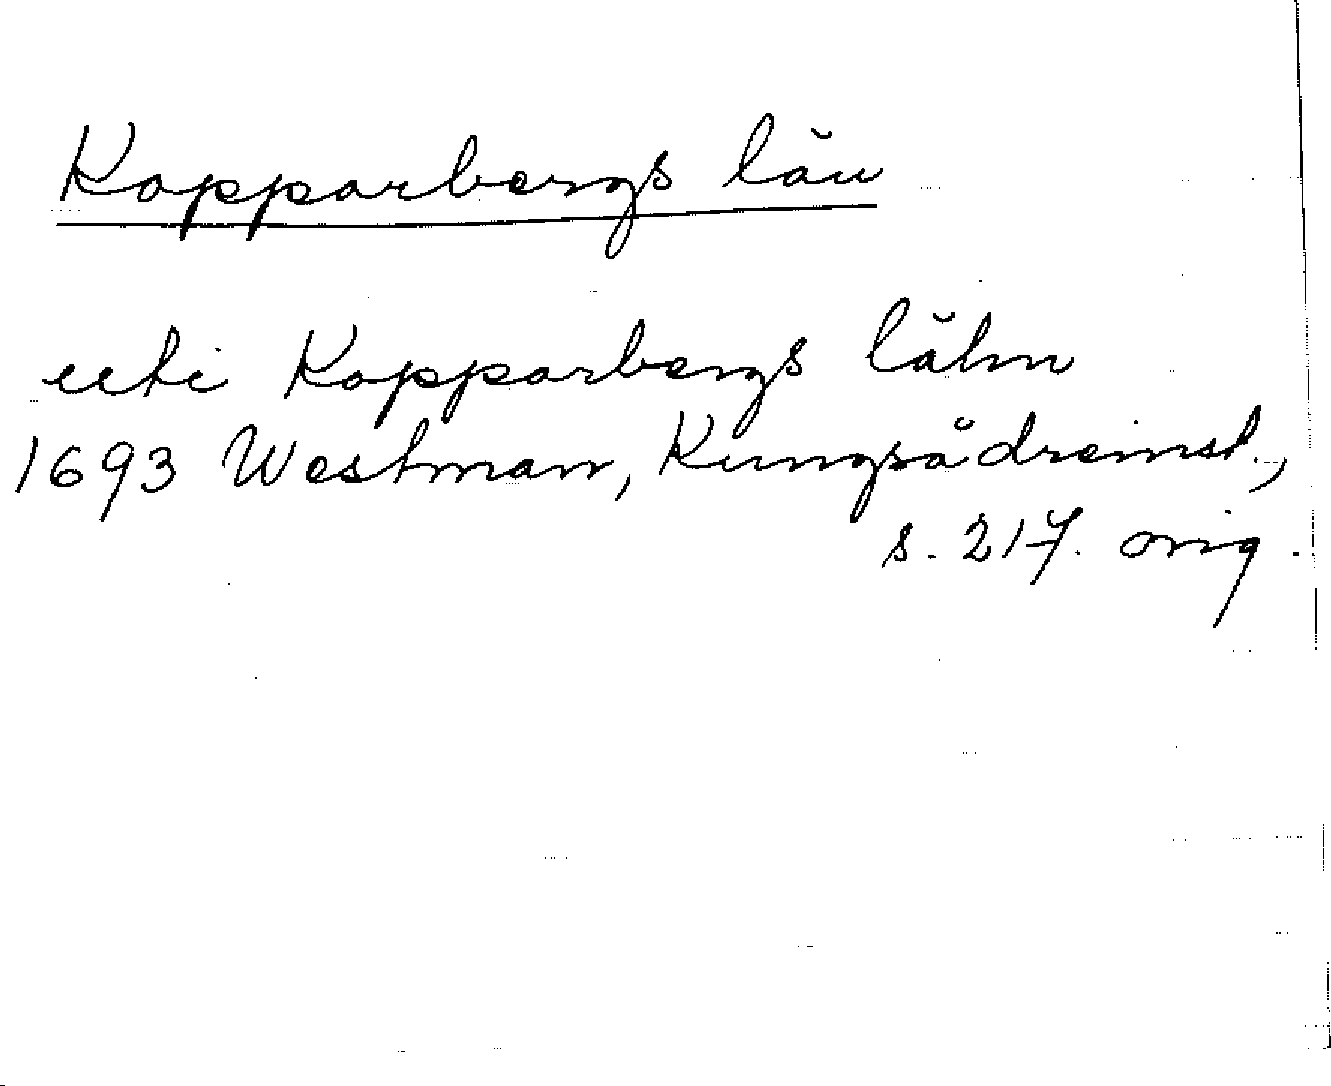 Kopparbergs län
uthi Kopparbergs lähn
1693 Westman, Kungsådreinst.,
s. 217. orig.